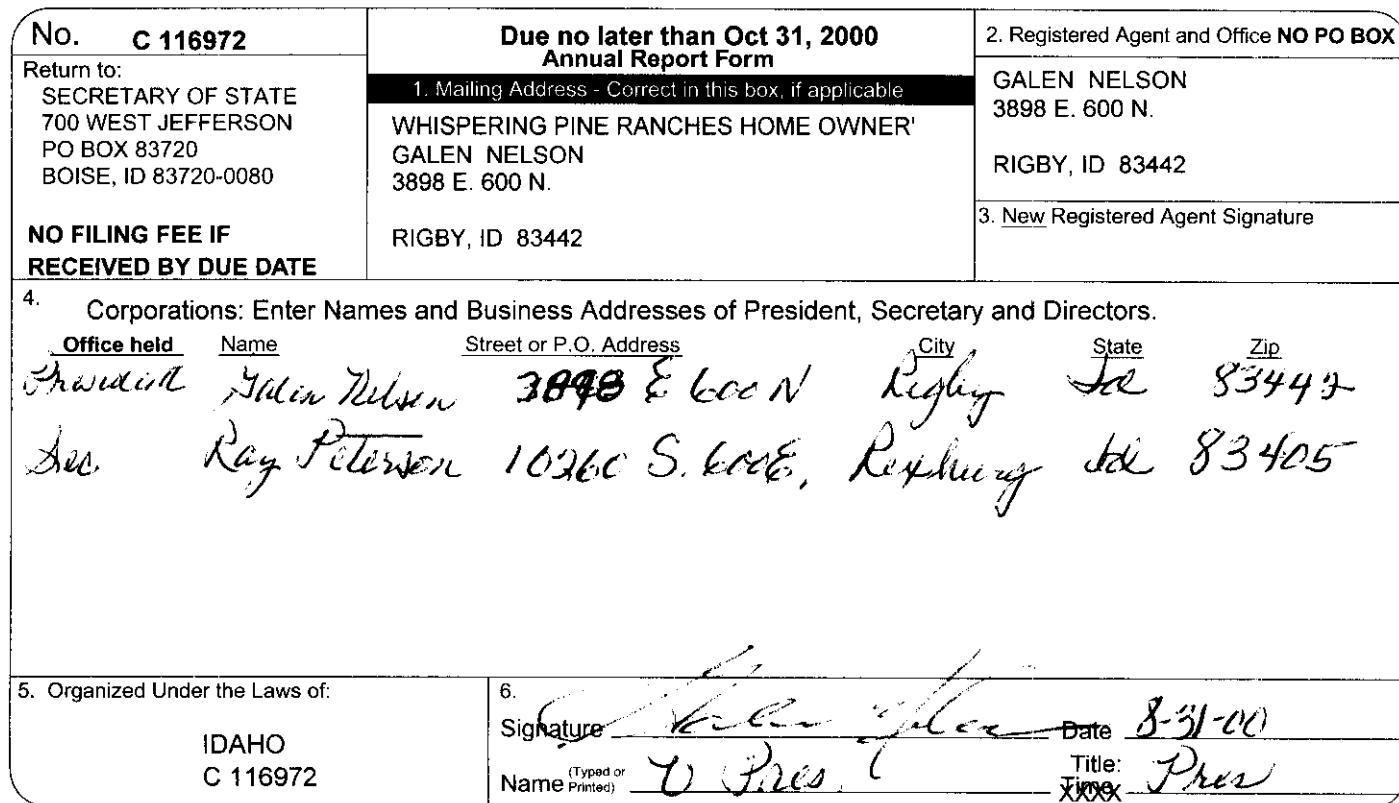 No. C 116972
Return to:
SECRETARY OF STATE
700 WEST JEFFERSON
PO BOX 83720
BOISE, ID 83720-0080
NO FILING FEE IF
RECEIVED BY DUE DATE
Due no later than Oct 31, 2000
Annual Report Form
1. Mailing Address - Correct in this box, if applicable
WHISPERING PINE RANCHES HOME OWNER'
GALEN NELSON
3898 E. 600 N.
RIGBY, ID 83442
2. Registered Agent and Office NO PO BOX
GALEN NELSON
3898 E. 600 N.
RIGBY, ID 83442
3. New Registered Agent Signature
4. Corporations: Enter Names and Business Addresses of President, Secretary and Directors.
Office held Name Street or P.O. Address City State Zip
President Galen Nelson 3898 E 600 N Rigby Id 83442
Sec Ray Peterson 10260 S. 600 E, Rexburg Id 83405
5. Organized Under the Laws of:
IDAHO
C 116972
6.
Signature Galen Nelson Date 8-31-00
Name (Typed or Printed) V Pres. Title: Pres